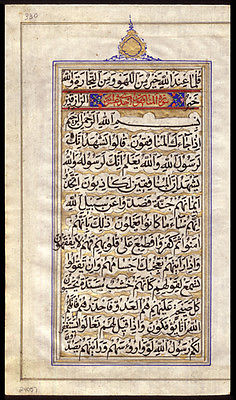 330
قل ما عند الله خير من اللهو ومن التجارة والله
خير سورة المنافقون الرازقين
بسم الله الرحمن الرحيم
إذا جاءك المنافقون قالوا نشهد إنك
لرسول الله والله يعلم إنك لرسوله والله
يشهد إن المنافقين لكاذبون اتخذوا
أيمانهم جنة فصدوا عن سبيل الله
إنهم ساء ما كانوا يعملون ذلك بأنهم
آمنوا ثم كفروا فطبع على قلوبهم فهم لا يفقهون
وإذا رأيتهم تعجبك أجسامهم وإن يقولوا
تسمع لقولهم كأنهم خشب مسندة يحسبون
كل صيحة عليهم هم العدو فاحذرهم قاتلهم
الله أنى يؤفكون وإذا قيل لهم تعالوا يستغفر
لكم رسول الله لووا رءوسهم ورأيتهم يصدون